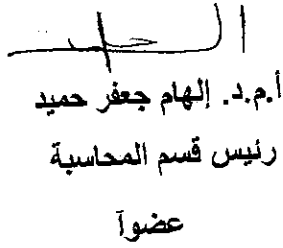 أ.م.د. إلهام جعفر حميد
رئيس قسم المحاسبة
عضوآ